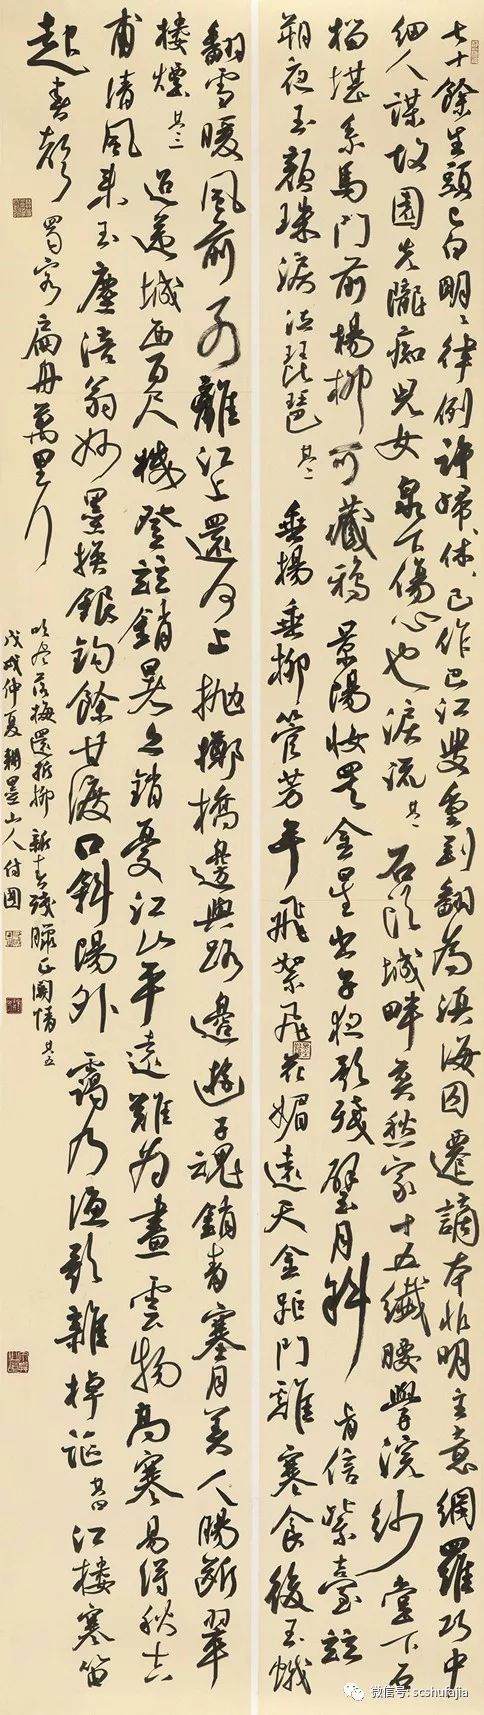 七十餘生頭已白明明律例許歸休、已作巴江叟重到翻為滇海囚遷謫本非明主意網羅巧中
細人謀故園先隴痴兒女泉下傷心也淚流其一 石頭城畔莫愁家十五纖腰學浣紗堂下石
榴堪系馬門前楊柳可藏鴉景陽妝罷金星出子夜歌殘璧月斜肯信紫臺玄
朔夜玉顏珠淚泣琵琶其二 垂楊垂柳管芳年飛絮飛花媚遠天金距鬥雞寒食後玉蛾
翻雪暖風前別離江上還河上拋擲橋邊與路邊遊子魂銷青塞月美人腸斷翠
樓煙其三 迢遞城西百尺樓登玆銷暑亦銷憂江山平遠難為畫雲物高寒易得秋吉
甫清風來玉麈涪翁妙墨換銀鉤餘甘渡口斜陽外靄乃漁歌雜棹謳其四 江樓寒笛
起春聲蜀客扁舟萬里行
吹盡落梅還折柳新春殘臘正關情其五
戊戌仲夏翰墨山人付國
微信号: scshufajia